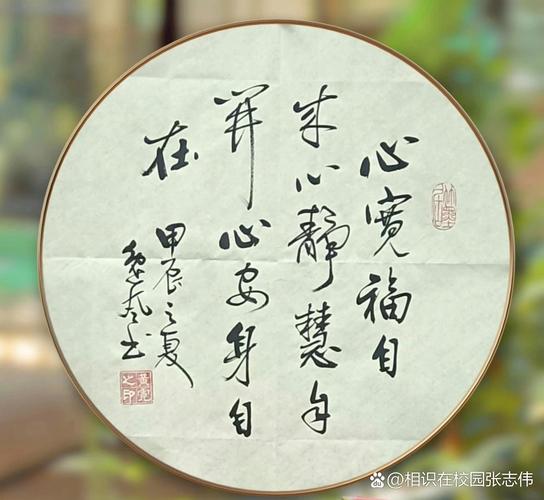 心寬福自
来心靜慧自
開心安身自
在
甲辰之夏
书
之印
@相识在校园张志伟